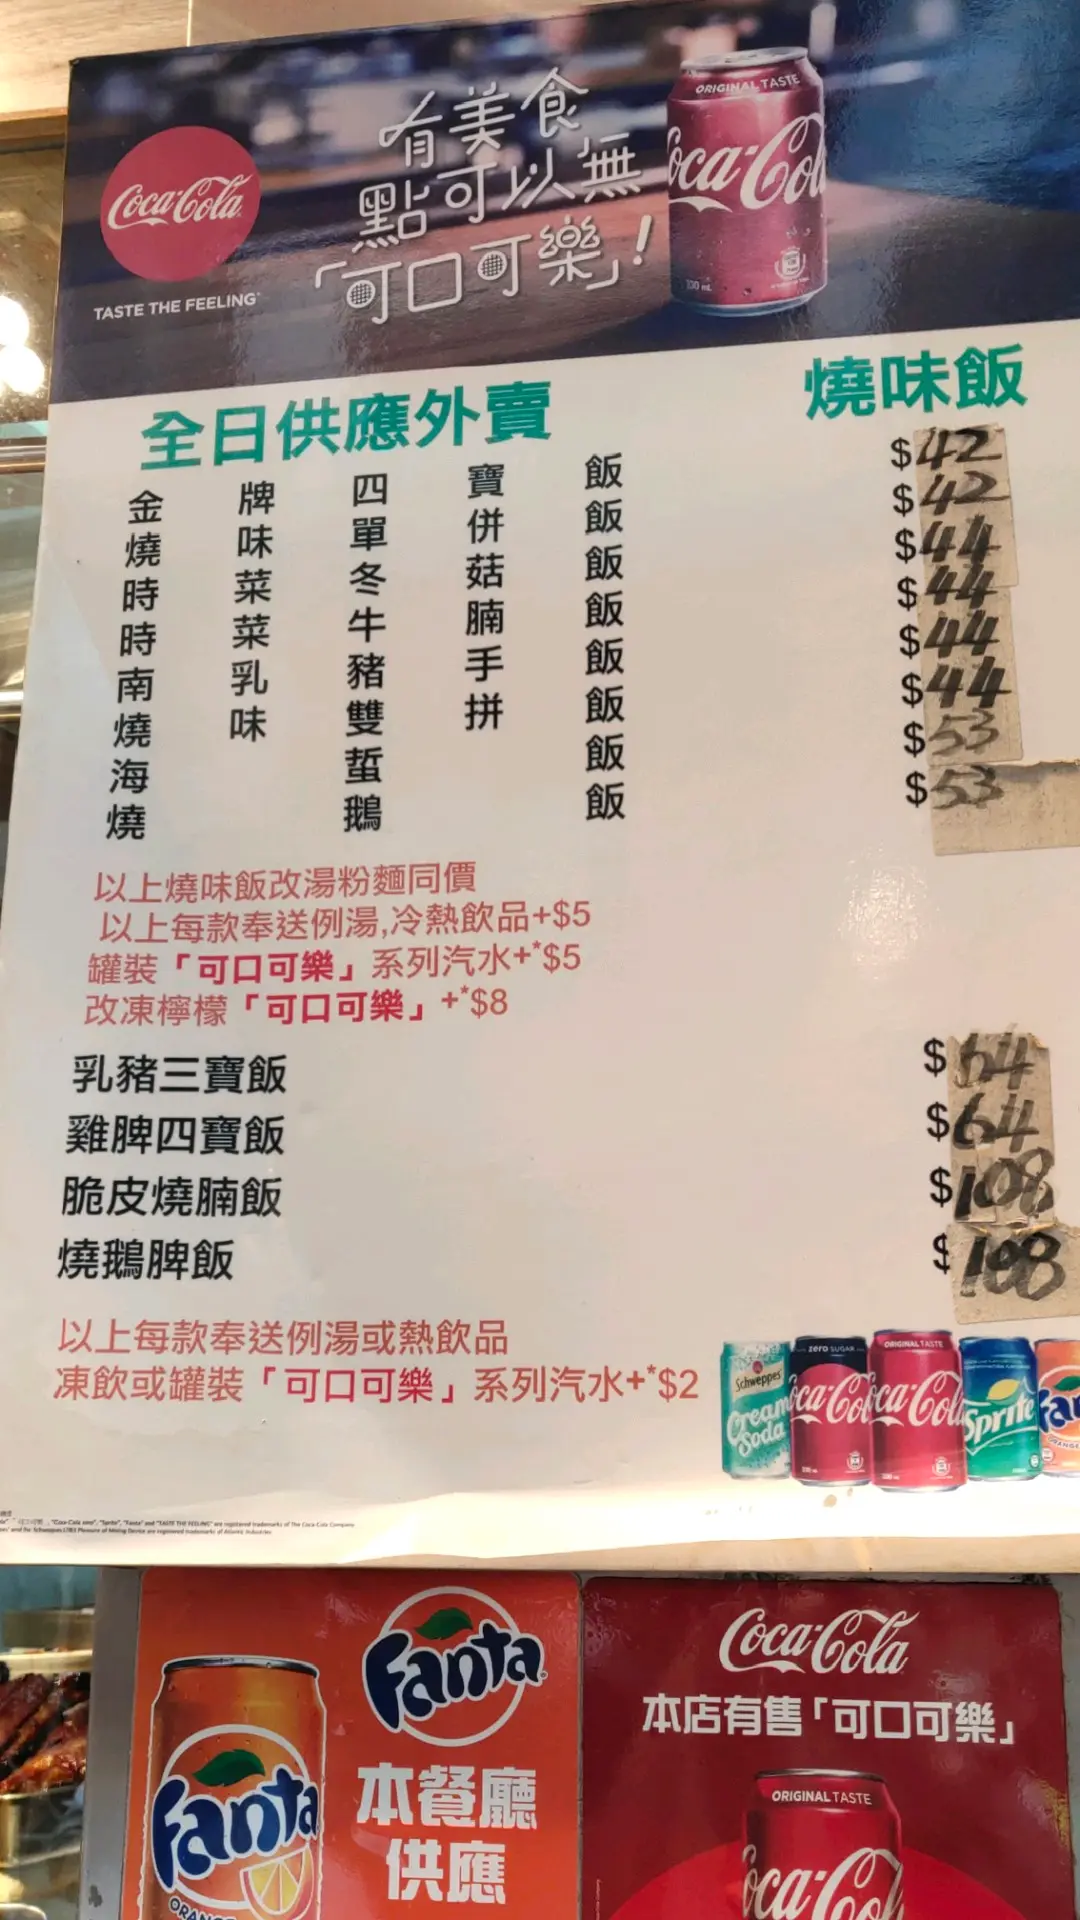 Coca-Cola
TASTE THE FEELING
有美食
點可以無
「可口可樂」!
ORIGINAL TASTE
Coca-Cola
330 mL
全日供應外賣 燒味飯
金牌四寶飯 $42
燒味單併飯 $42
時菜冬菇飯 $44
時菜牛腩飯 $44
南乳豬手飯 $44
燒味雙拼飯 $44
海蜇飯 $53
燒鵝飯 $53
以上燒味飯改湯粉麵同價
以上每款奉送例湯,冷熱飲品+$5
罐裝「可口可樂」系列汽水+*$5
改凍檸檬「可口可樂」+*$8
乳豬三寶飯 $
雞脾四寶飯 $64
脆皮燒腩飯 $108
燒鵝脾飯 $108
以上每款奉送例湯或熱飲品
凍飲或罐裝「可口可樂」系列汽水+*$2
Schweppes Cream Soda
ZERO SUGAR Coca-Cola
ORIGINAL TASTE Coca-Cola
Sprite
Fanta
Fanta
本餐廳
供應
Fanta
Coca-Cola
本店有售「可口可樂」
ORIGINAL TASTE
Coca-Cola